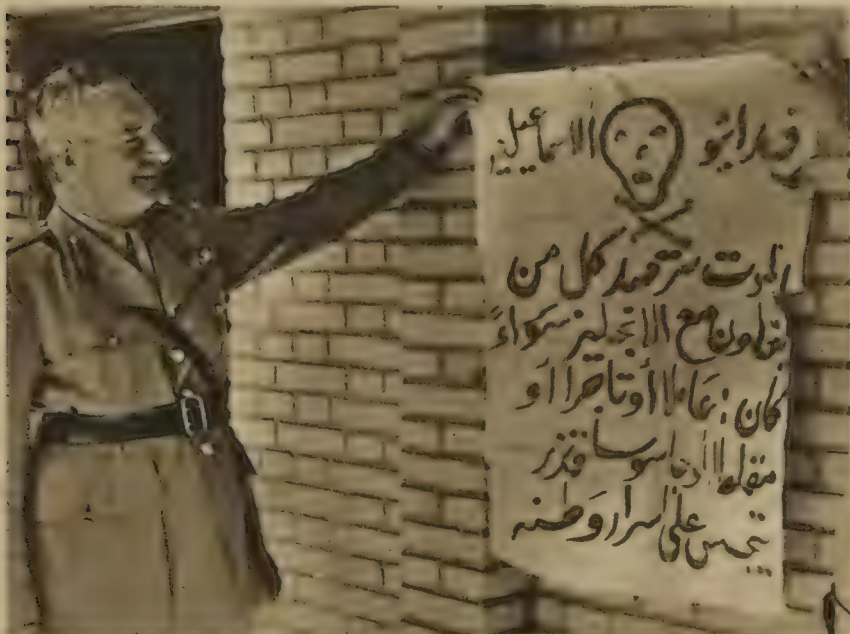 الاسماعيلية
الموت سترقد لكل من
يتعاون مع الانجليز سواء
كان: عاملا أو تاجرا أو
مقاولا أو جاسوسا قذر
يتجسس على اسرار وطنه